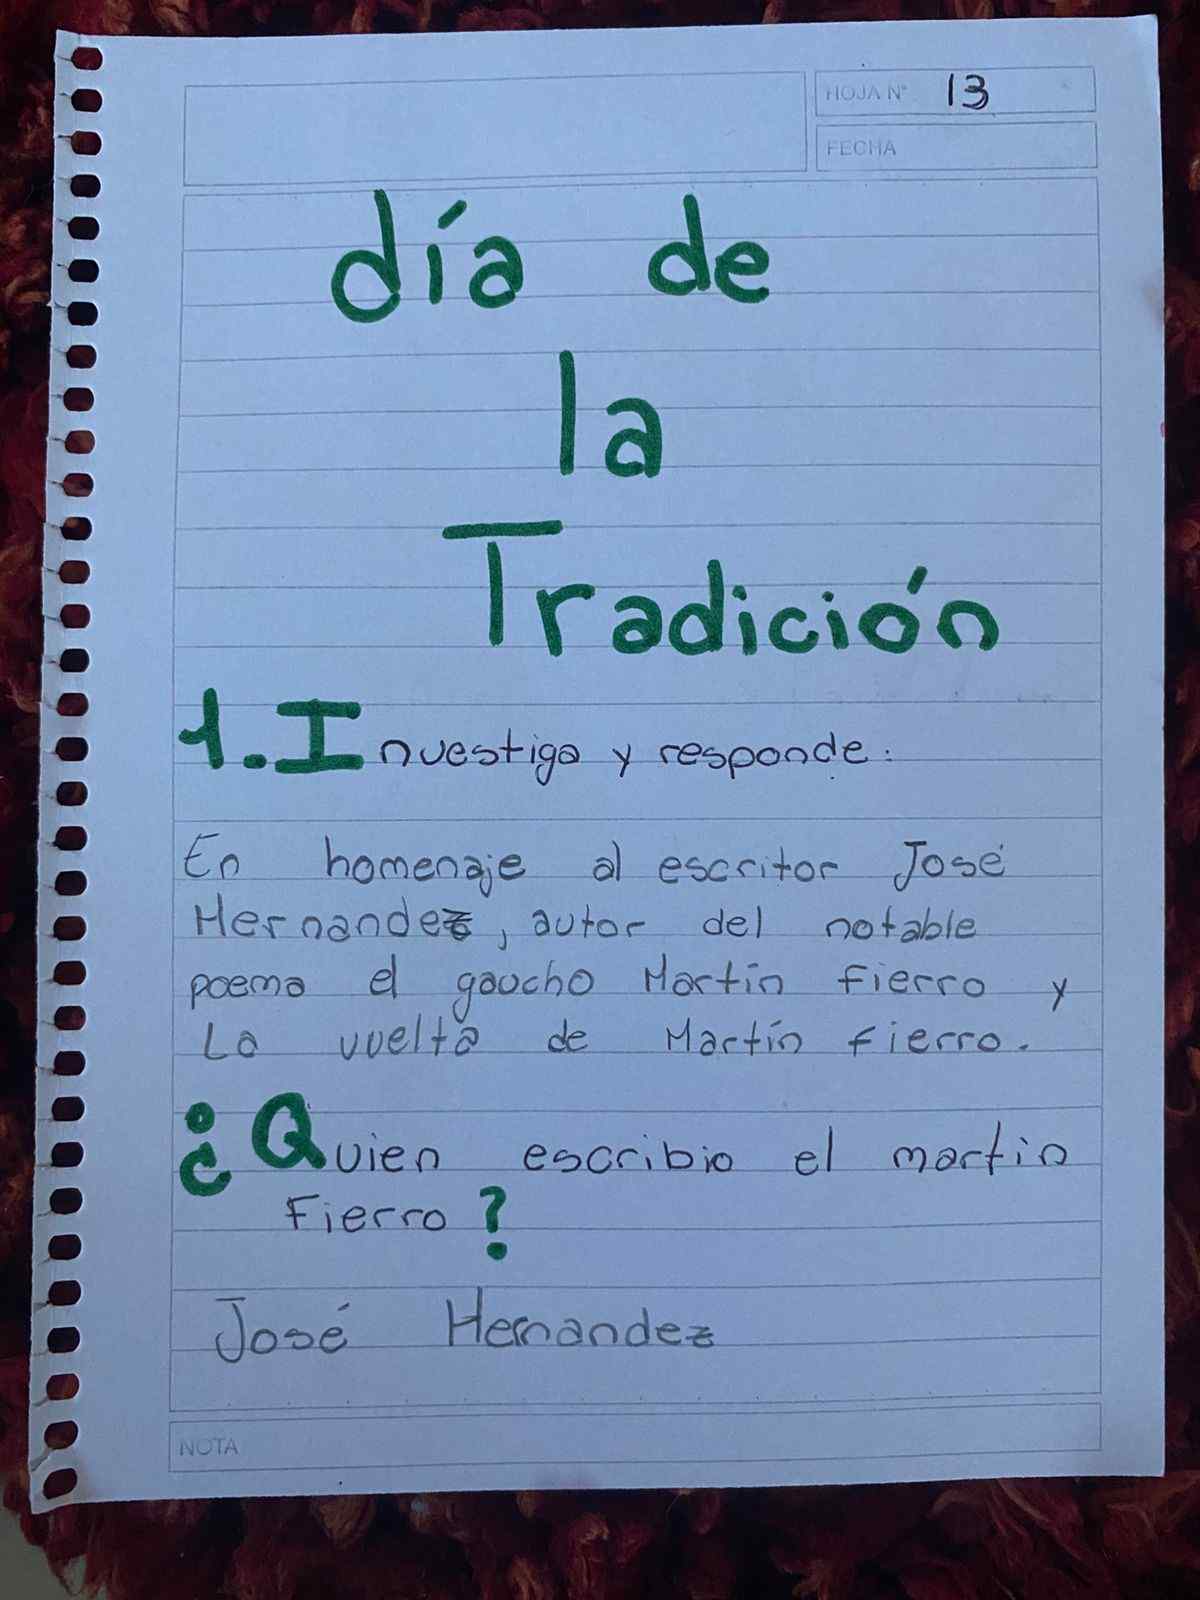 HOJA N° 13
FECHA
día de
la
Tradición
1. Investiga y responde:
En homenaje al escritor José
Hernandez, autor del notable
poema el gaucho Martín Fierro y
La vuelta de Martín Fierro.
¿Quien escribio el martin
Fierro?
José Hernandez
NOTA